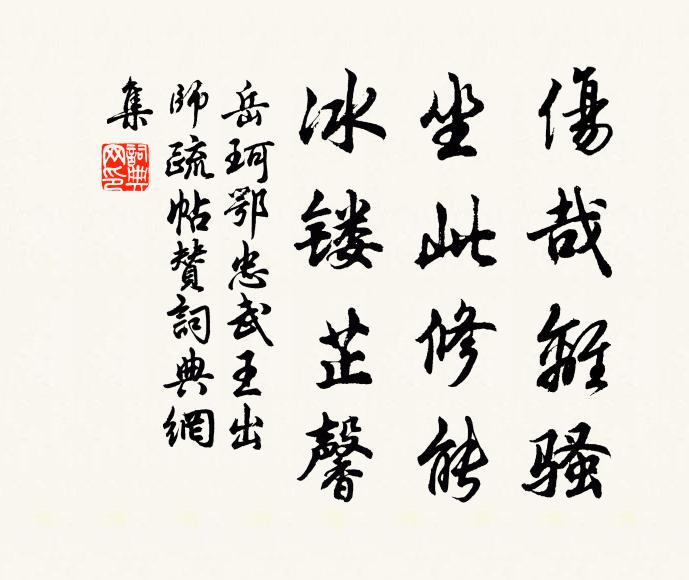 傷哉離骚
坐此修能
冰镂芷馨
岳珂鄂忠武王出
師疏帖贊詞典網
集
詞典網印